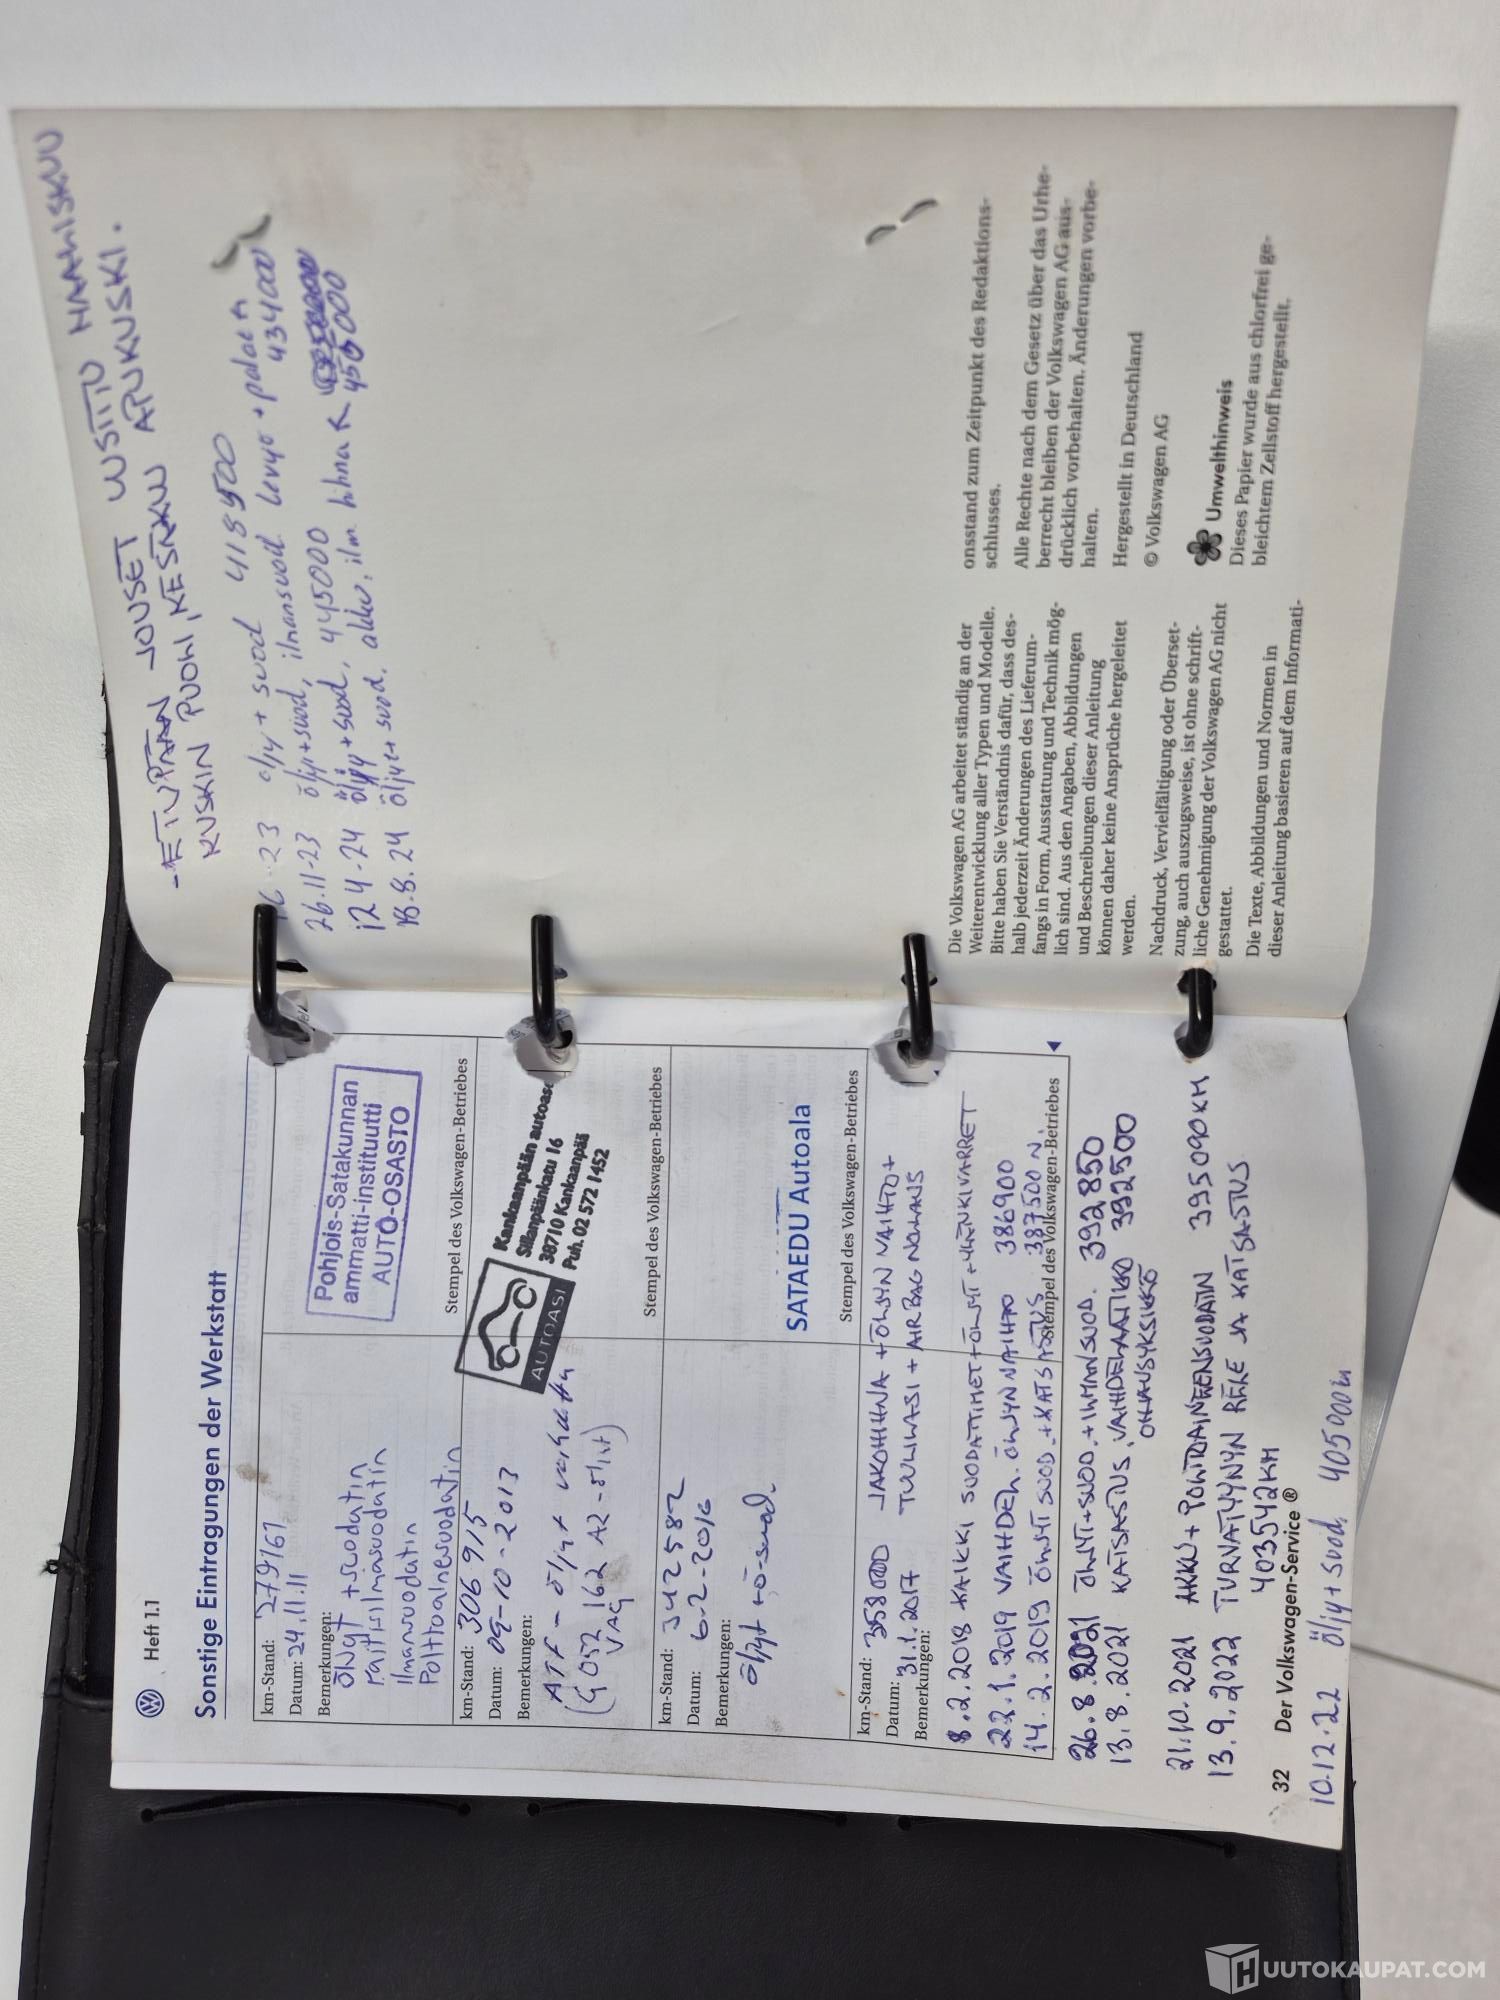 Heft 1.1
Sonstige Eintragungen der Werkstatt
km-Stand: 279167
Datum: 24.11.11
Bemerkungen:
ÖLJYT + suodatin
raitisilmasuodatin
Ilmansuodatin
Polttoainesuodatin
Pohjois-Satakunnan
ammatti-instituutti
AUTO-OSASTO
Stempel des Volkswagen-Betriebes
km-Stand: 306 915
Datum: 09-10-2013
Bemerkungen:
ATF - öljyt
(G 052 162 A2 - öljyt)
VAG
AUTOASI
Kankaanpään autoase
Sillanpäänkatu 16
38710 Kankaanpää
Puh. 02 572 1452
Stempel des Volkswagen-Betriebes
km-Stand: 342582
Datum: 6.2-2016
Bemerkungen:
öljyt + ö-suod.
SATAEDU Autoala
Stempel des Volkswagen-Betriebes
km-Stand: 358000 JAKOHIHNA + ÖLJYN VAIHTO +
Datum: 31.1.2017 TUULILASI + AIRBAG NOLLAUS
Bemerkungen:
8.2.2018 KAIKKI SUODATTIMET + ÖLJYT +
22.1.2019 VAIHDEL. ÖLJYNVAIHTO 386900
14.2.2019 ÖLJYT SUOD. + KATSASTUS 387500 N.
Stempel des Volkswagen-Betriebes
26.8.2021 ÖLJYT + SUOD. + ILMANSUOD. 392850
13.8.2021 KATSASTUS, VAIHDELAATIKKO 392500
OHJAUSYKSIKKÖ
21.10.2021 AKKU + POLTTOAINEENSUODATIN 395090 KM
13.9.2022 TURVATYYNYN RELE JA KATSASTUS
403542 KM
32 Der Volkswagen-Service ®
10.12.22 Öljy + suod. 405000
- ETUPÄÄN JOUSET UUSITTU MAALISKUU
KUSKIN PUOLI, KESÄKUU APUKUSKI.
23 öljy + suod 418500
26.11-23 öljy + suod, ilmansuod. levyt + palat 434000
12 4 - 24 öljy + suod, 445000
18.8.24 öljyt + suod. akku, ilm 450000
Die Volkswagen AG arbeitet ständig an der
Weiterentwicklung aller Typen und Modelle.
Bitte haben Sie Verständnis dafür, dass des-
halb jederzeit Änderungen des Lieferum-
fangs in Form, Ausstattung und Technik mög-
lich sind. Aus den Angaben, Abbildungen
und Beschreibungen dieser Anleitung
können daher keine Ansprüche hergeleitet
werden.
Nachdruck, Vervielfältigung oder Überset-
zung, auch auszugsweise, ist ohne schrift-
liche Genehmigung der Volkswagen AG nicht
gestattet.
Die Texte, Abbildungen und Normen in
dieser Anleitung basieren auf dem Informati-
onsstand zum Zeitpunkt des Redaktions-
schlusses.
Alle Rechte nach dem Gesetz über das Urhe-
berrecht bleiben der Volkswagen AG aus-
drücklich vorbehalten. Änderungen vorbe-
halten.
Hergestellt in Deutschland
© Volkswagen AG
Umwelthinweis
Dieses Papier wurde aus chlorfrei ge-
bleichtem Zellstoff hergestellt.
HUUTOKAUPAT.COM